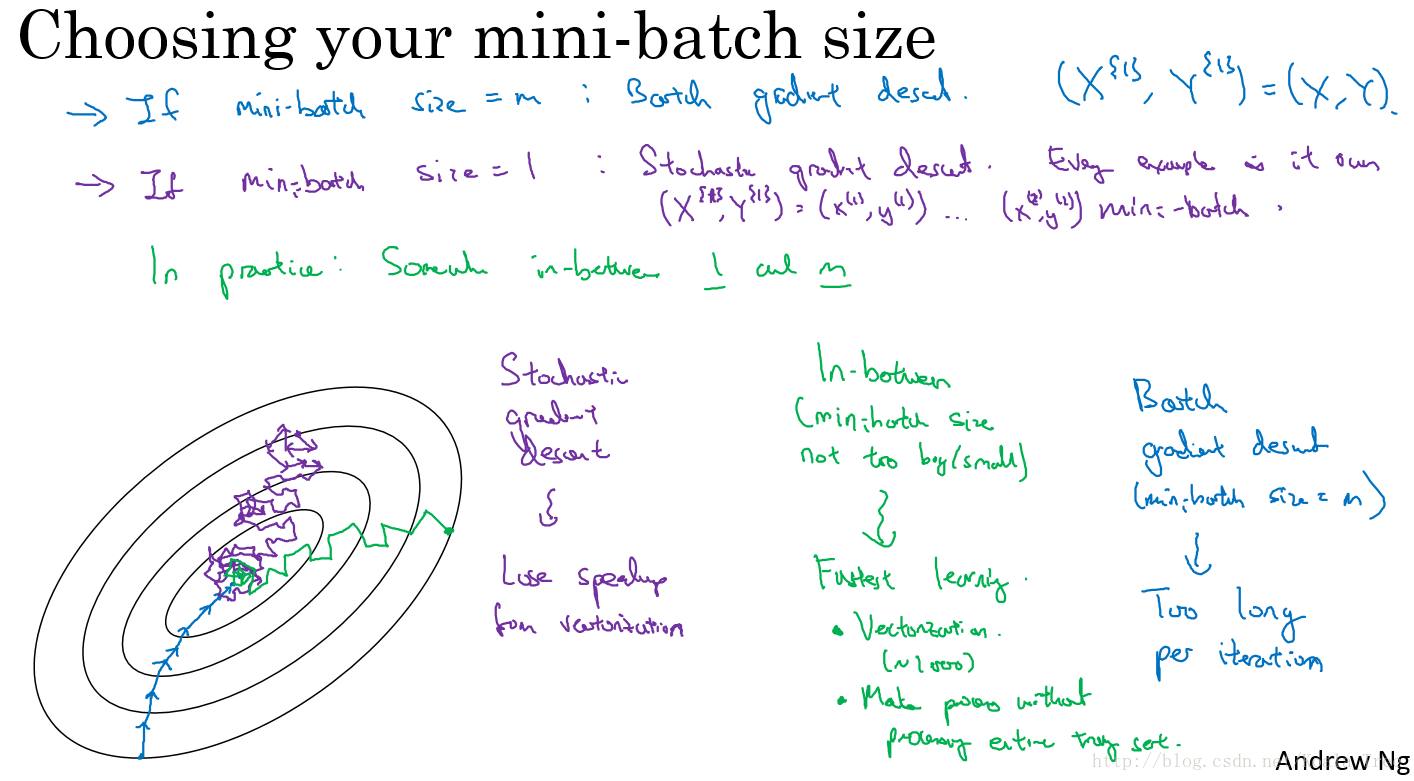 Choosing your mini-batch size
→ If mini-batch size = m : Batch gradient descent. (X^{1}, Y^{1}) = (X, Y).
→ If mini-batch size = 1 : Stochastic gradient descent. Every example is it own
(X^{1}, Y^{1}) = (x^(1), y^(1)) ... (x^(2), y^(2)) mini-batch.
In practice: Somewhere in-between 1 and m
Stochastic
gradient
descent
Lose speedup
from vectorization
In-between
(mini-batch size
not too big/small)
Fastest learning.
• Vectorization.
(~1000)
• Make progress without
processing entire training set.
Batch
gradient descent
(mini-batch size = m)
Too long
per iteration
http://blog.csdn.net/
Andrew Ng